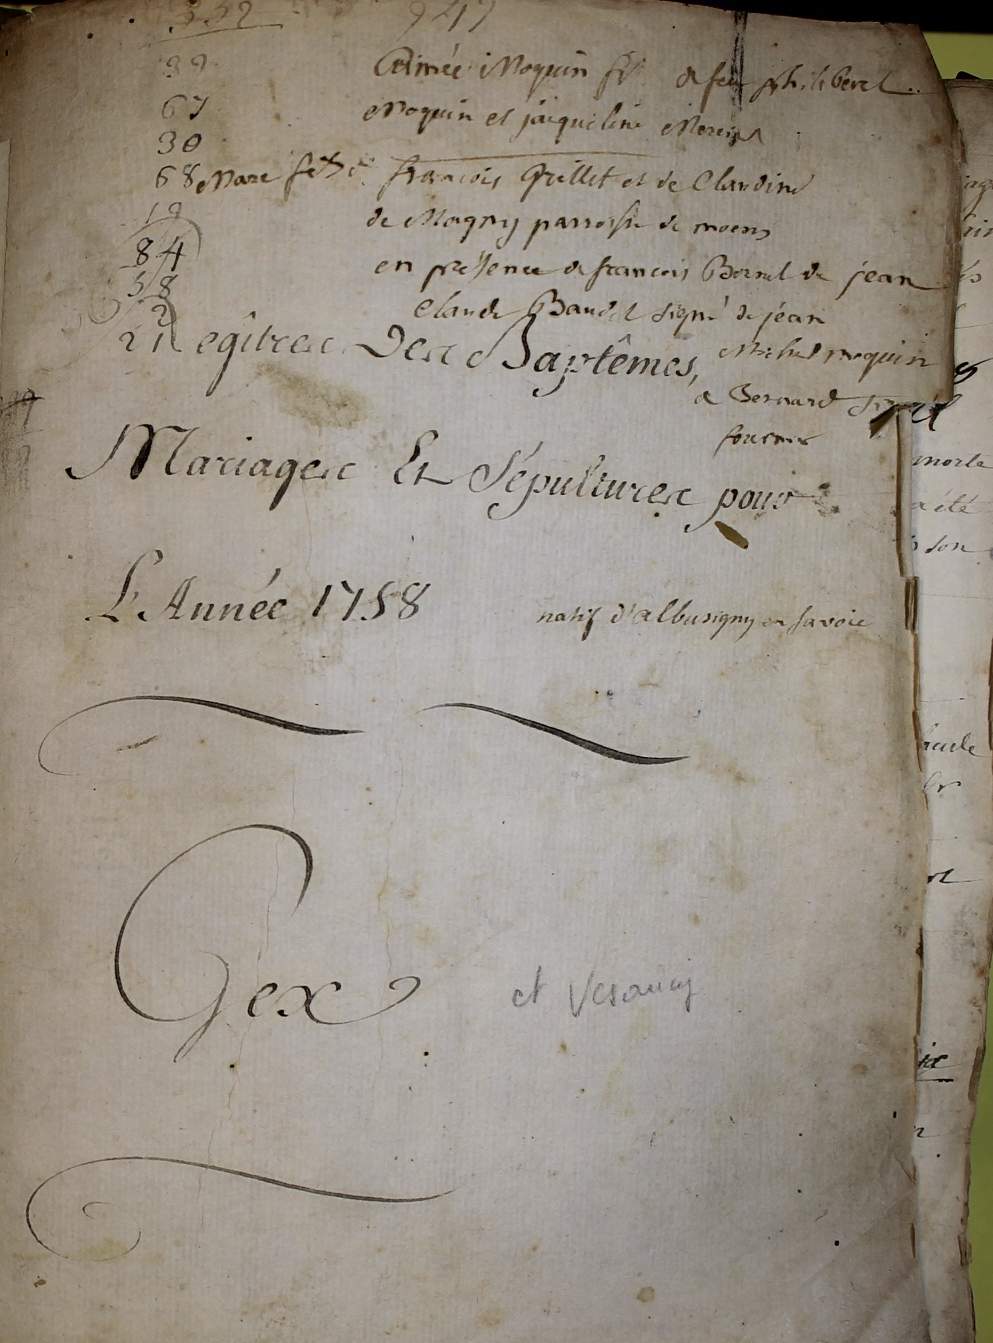 332 947
39 Aimée Moquin fs de feu philibert
67 Moquin et jaiqueline
30
68 Marc françois Grillet et de Claudine
19 de Magny parroisse de moens
84 en présence de francois Bornet de jean
58 Claude Baudet signé de jean
2 Michel moquin
21
Regîtres Des Baptêmes,
a Bernard
fournier
Mariages Et Sépultures pour
L'Année 1758
natif d'albusigny en savoie
Gex et Vesancy
morte
a été
son